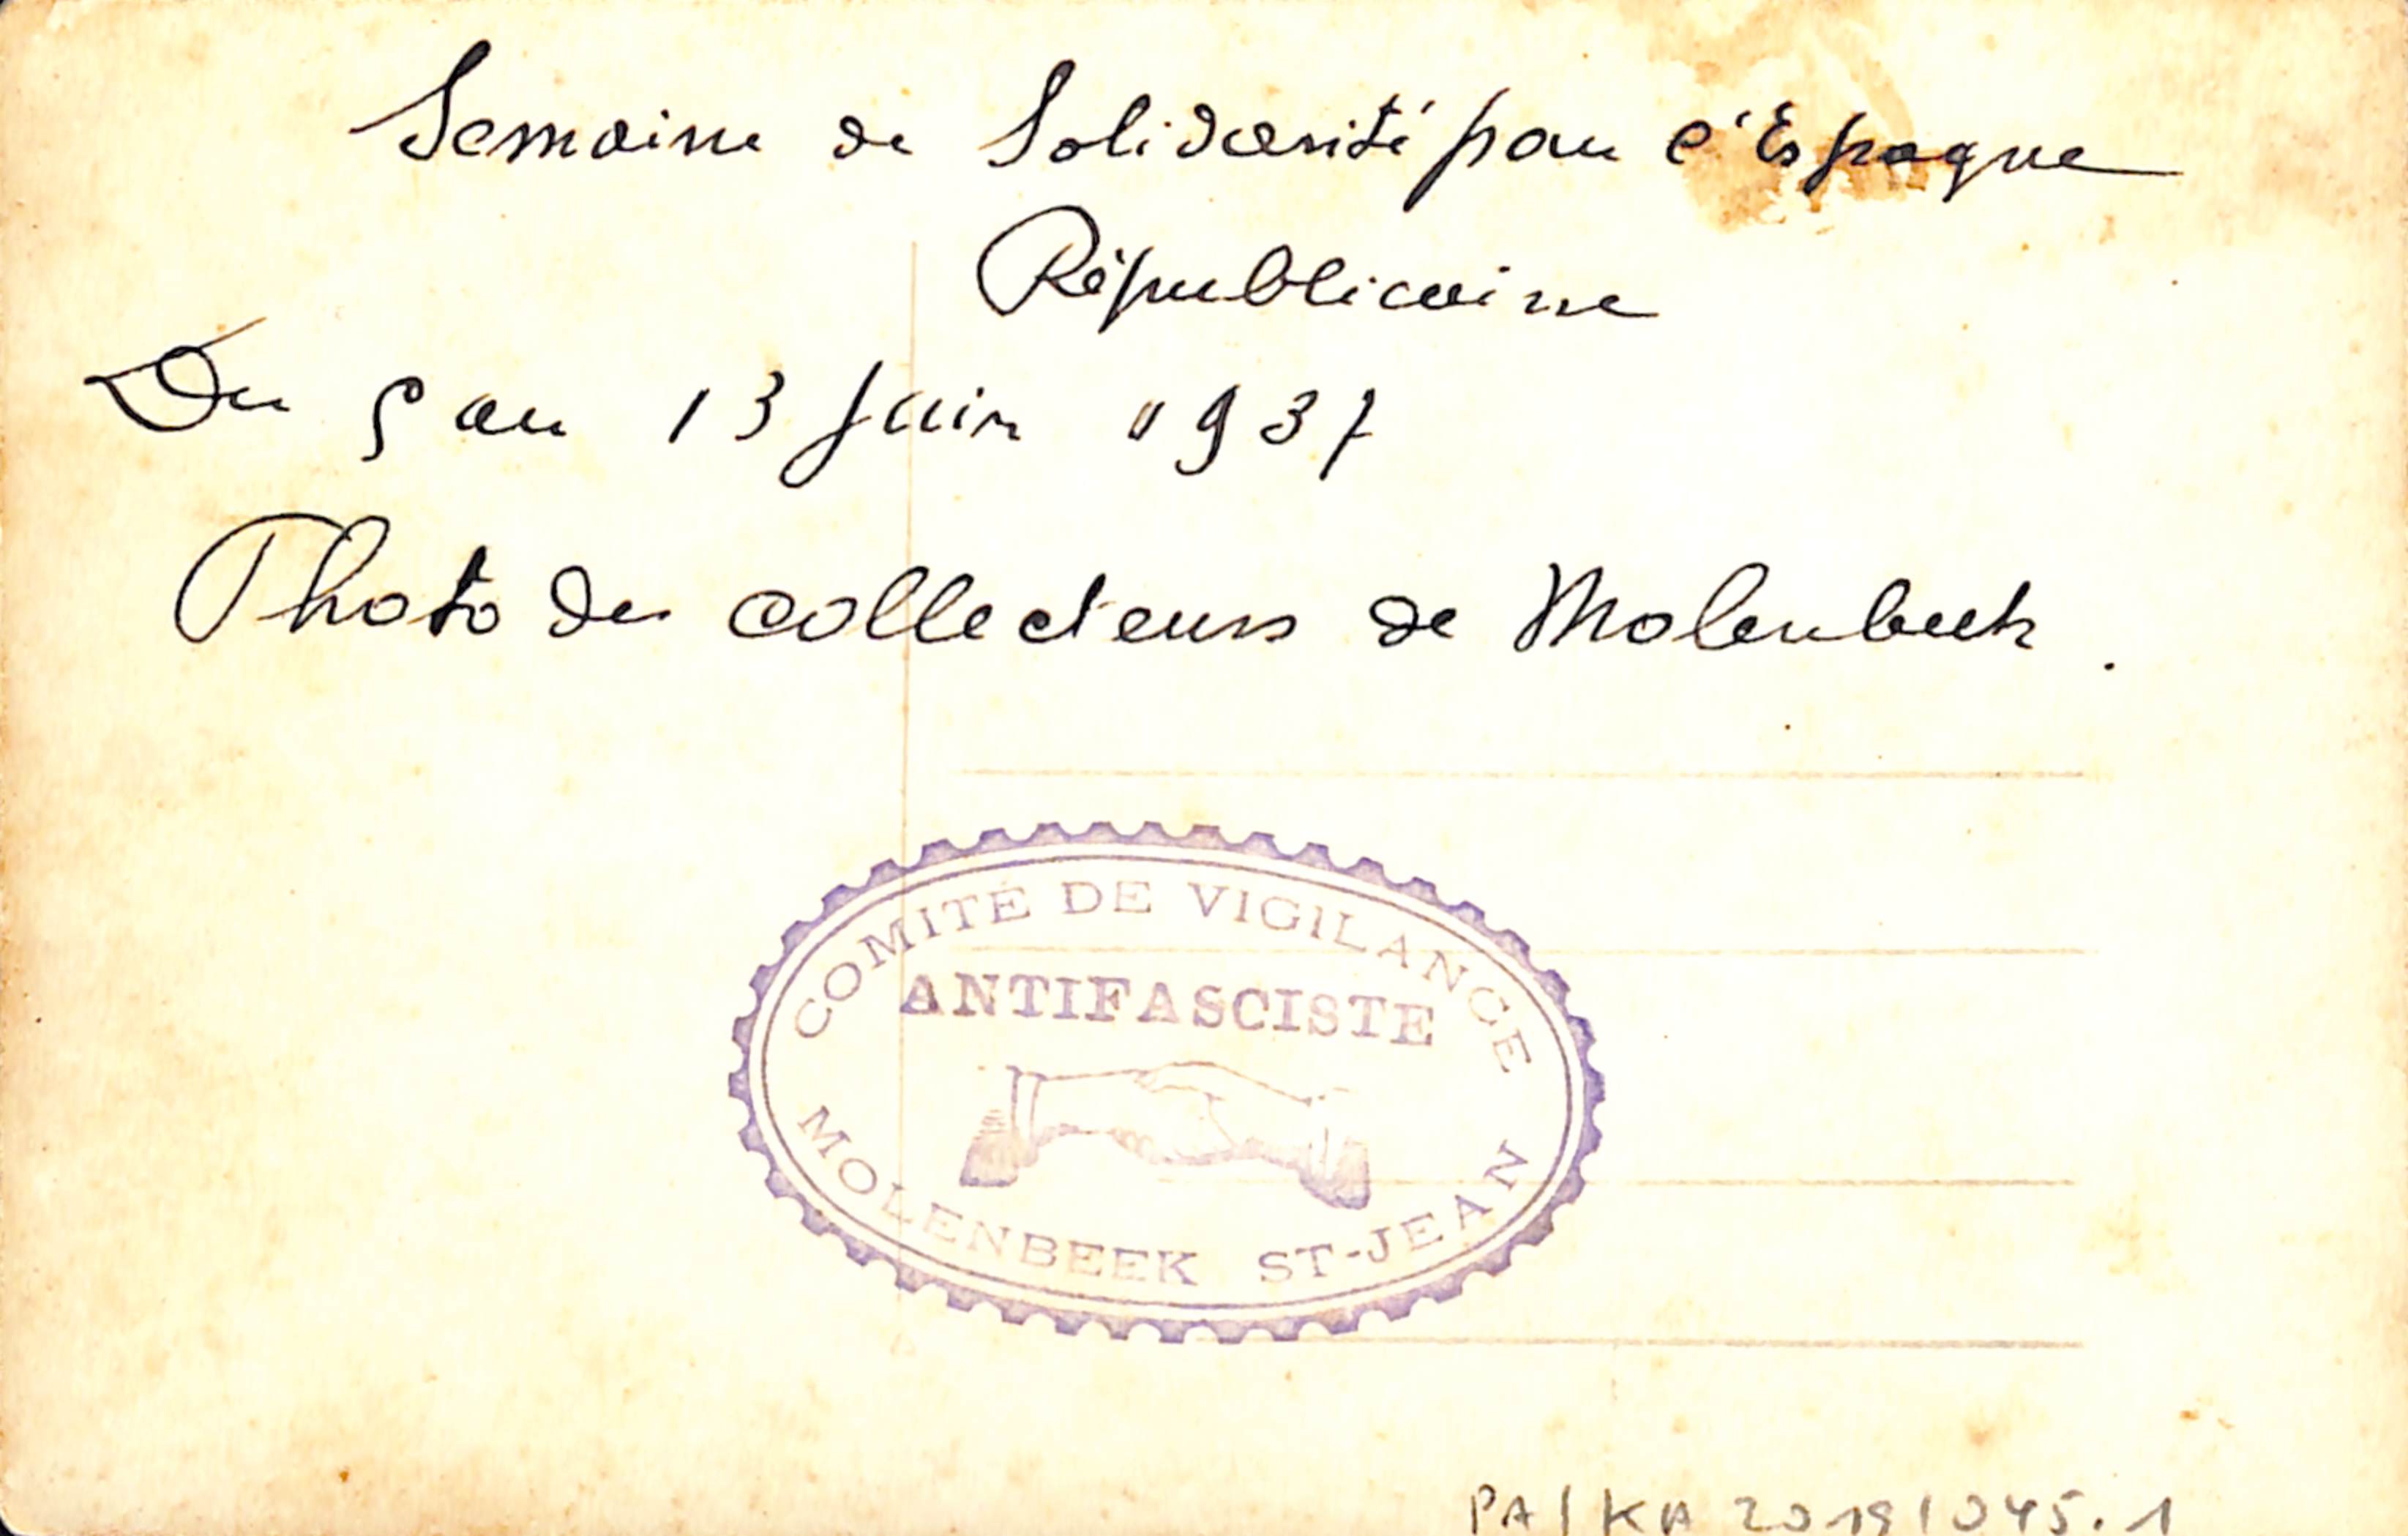 Semaine de Solidarité pour l'Espagne
Républicaine
Du 5 au 13 Juin 1937
Photo des collecteurs de Molenbeek.
COMITÉ DE VIGILANCE
ANTIFASCISTE
MOLENBEEK ST-JEAN
PA/KA 2019/045.1